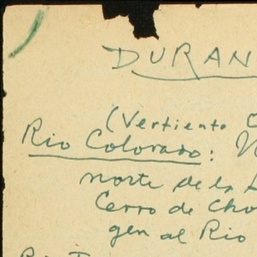 DURAN
(Vertiente
Rio Colorado:
norte de la
Cerro de Cho
gen al Rio